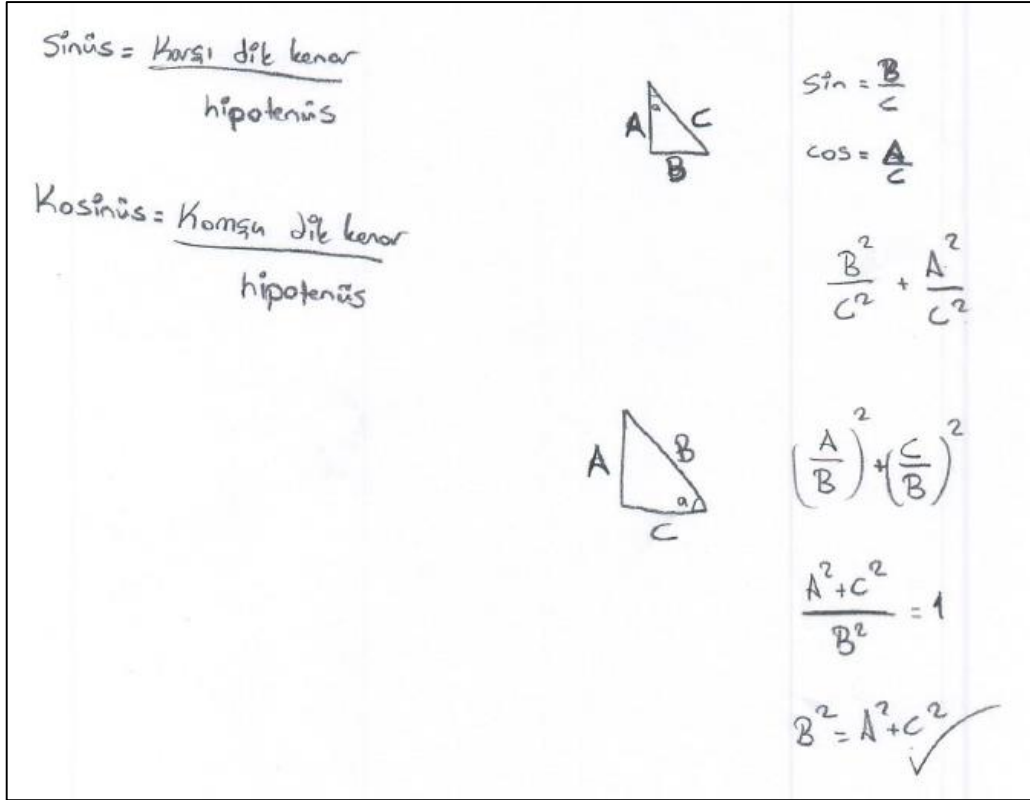 Sinüs = Karşı dik kenar
hipotenüs
Kosinüs = Komşu dik kenar
hipotenüs
A a C
B
sin = B/C
cos = A/C
B²/C² + A²/C²
A B
a
C
(A/B)² + (C/B)²
A² + C² / B² = 1
B² = A² + C² ✓